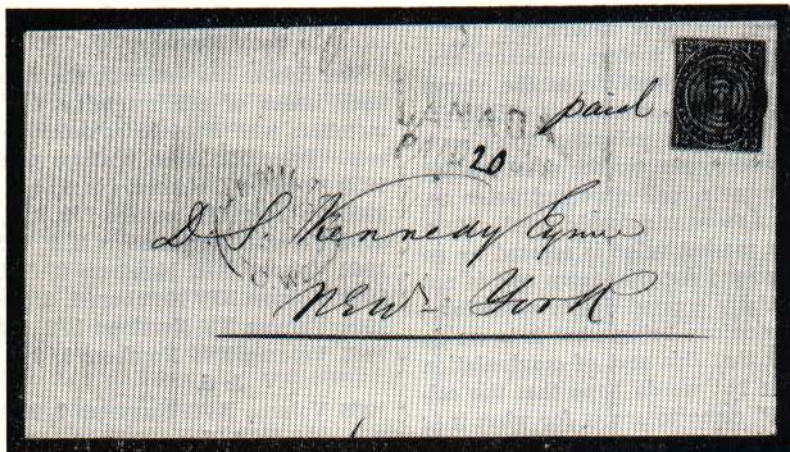 paid
CANADA
PAID
20
D. S. Kennedy Esquire
New-York